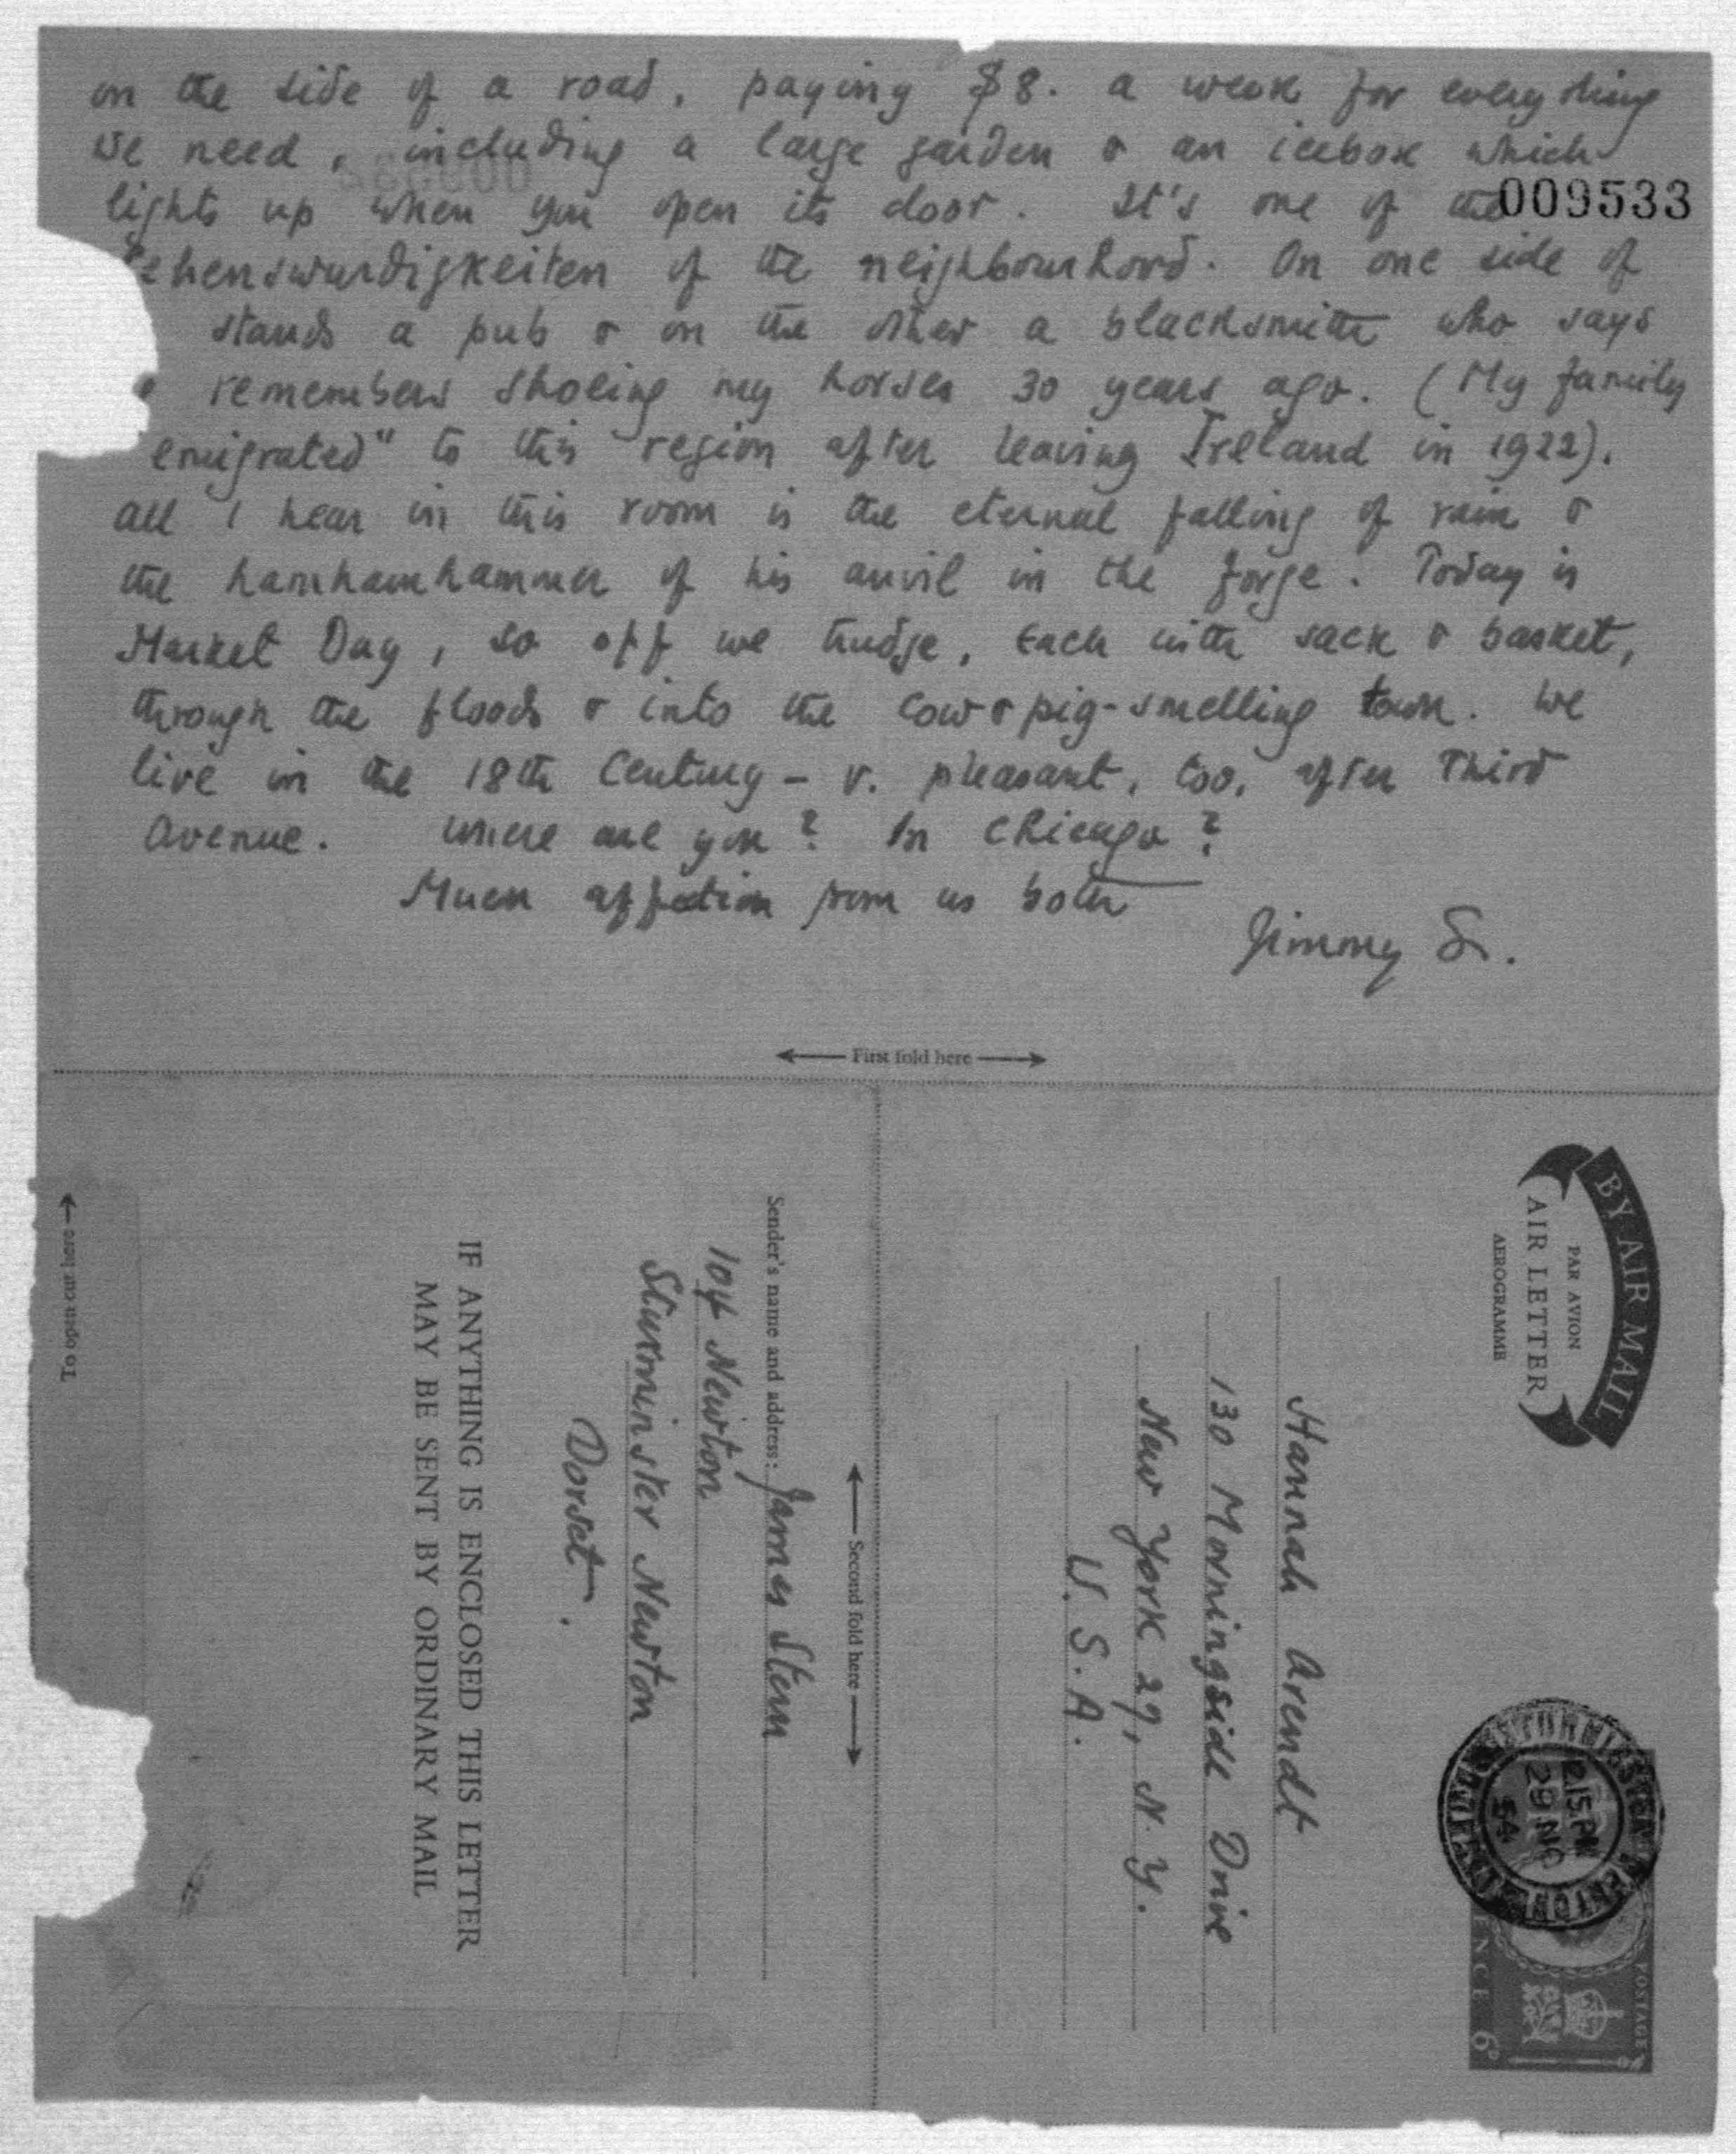 on the side of a road, paying $8. a week for everything
we need, including a large garden & an icebox which
lights up when you open its door. It's one of the
009533
ehenswurdigkeiten of the neighbourhood. On one side of
stands a pub & on the other a blacksmith who says
remembers shoeing my horses 30 years ago. (My family
emigrated" to this region after leaving Ireland in 1922).
All I hear in this room is the eternal falling of rain &
the hamhamhammer of his anvil in the forge. Today is
Market Day, so off we trudge, each with sack & basket,
through the floods & into the cow & pig-smelling town. We
live in the 18th Century – v. pleasant, too, after Third
Avenue. Where are you? In Chicago?
Much affection from us both
Jimmy S.
First fold here
BY AIR MAIL
PAR AVION
AIR LETTER
AEROGRAMME
Hannah Arendt
130 Morningside Drive
New York 27, N.Y.
U.S.A.
STURMINSTER NEWTON
2.15 PM
29 NO
54
POSTAGE
ENCE 6D
Second fold here
Sender's name and address: James Stern
104 Newton
Sturminster Newton
Dorset.
IF ANYTHING IS ENCLOSED THIS LETTER
MAY BE SENT BY ORDINARY MAIL
To open cut here